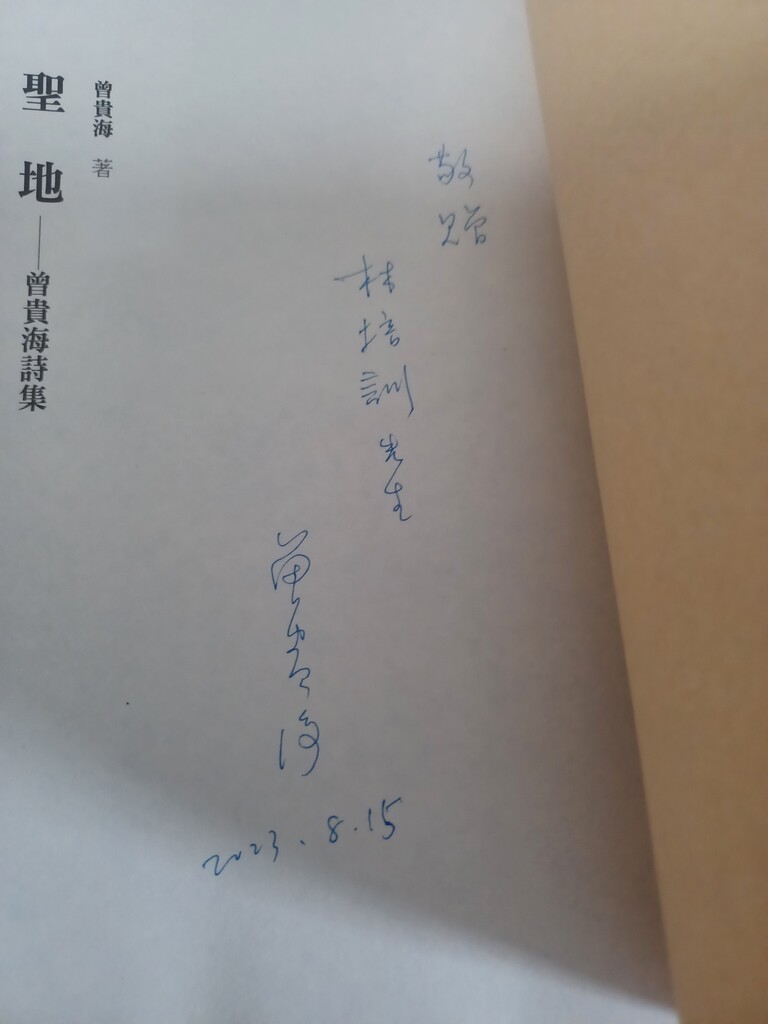 敬贈
林培訓先生
曾貴海
2023.8.15
曾貴海 著
聖地——曾貴海詩集